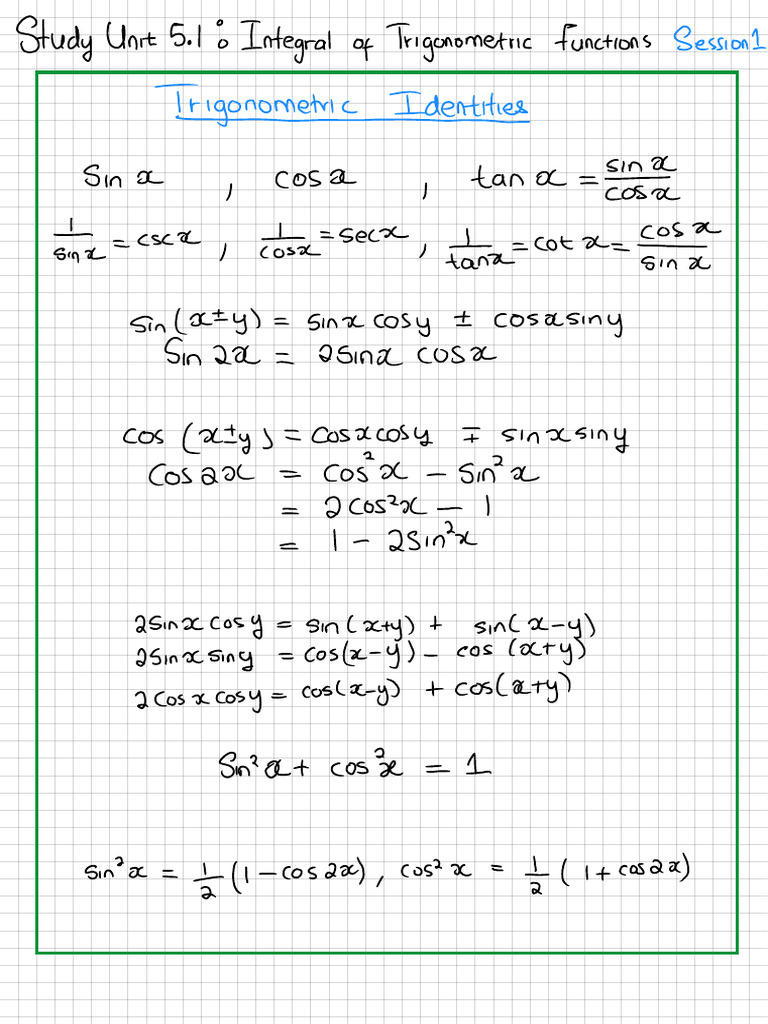 Study Unit 5.1 : Integral of Trigonometric Functions Session 1
Trigonometric Identities
Sin x , cos x , tan x = sin x / cos x
1 / sin x = csc x , 1 / cos x = sec x , 1 / tan x = cot x = cos x / sin x
sin (x ± y) = sin x cos y ± cos x sin y
Sin 2x = 2 sin x cos x
cos (x ± y) = cos x cos y ∓ sin x sin y
Cos 2x = cos²x − sin²x
= 2 cos²x − 1
= 1 − 2 sin²x
2 sin x cos y = sin (x+y) + sin( x−y)
2 sin x sin y = cos(x−y) − cos (x+y)
2 cos x cos y = cos(x−y) + cos(x+y)
Sin²x + cos²x = 1
sin²x = 1/2 (1 − cos 2x) , cos²x = 1/2 ( 1 + cos 2x)